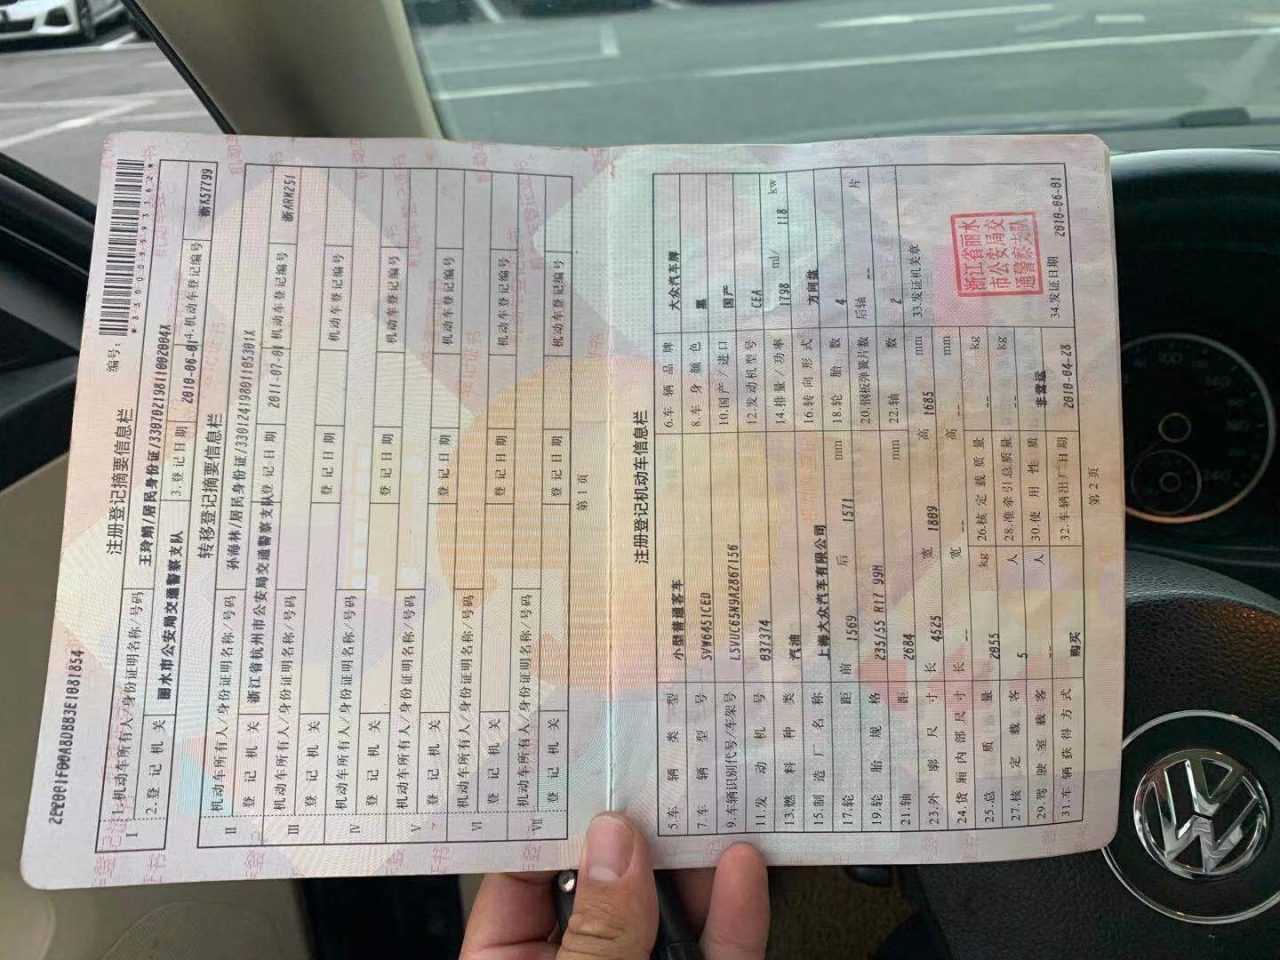 2EZ001F00A8DBB3E1081854
编号:
*330009593162*
注册登记摘要信息栏
I
1.机动车所有人/身份证明名称/号码 王玲娟/居民身份证/33070219811002004X
2.登记机关 丽水市公安局交通警察支队 3.登记日期 2010-06-01 4.机动车登记编号 浙KS7799
转移登记摘要信息栏
II 机动车所有人/身份证明名称/号码 孙海林/居民身份证/33012419801105301X
登记机关 浙江省杭州市公安局交通警察支队 登记日期 2011-07-01 机动车登记编号 浙ARM251
III 机动车所有人/身份证明名称/号码
登记机关 登记日期 机动车登记编号
IV 机动车所有人/身份证明名称/号码
登记机关 登记日期 机动车登记编号
V 机动车所有人/身份证明名称/号码
登记机关 登记日期 机动车登记编号
VI 机动车所有人/身份证明名称/号码
登记机关 登记日期 机动车登记编号
VII 机动车所有人/身份证明名称/号码
登记机关 登记日期 机动车登记编号
第1页
注册登记机动车信息栏
5.车辆类型 小型普通客车 6.车辆品牌 大众汽车牌
7.车辆型号 SVW6451CED 8.车身颜色 黑
9.车辆识别代号/车架号 LSVUC65N9A2867156 10.国产/进口 国产
11.发动机号 037374 12.发动机型号 CEA
13.燃料种类 汽油 14.排量/功率 1798 ml/ 118 kw
15.制造厂名称 上海大众汽车有限公司 16.转向形式 方向盘
17.轮距 前 1569 后 1571 mm 18.轮胎数 4
19.轮胎规格 235/55 R17 99H 20.钢板弹簧片数 后轴 -- 片
21.轴距 2684 mm 22.轴数 2
23.外廓尺寸 长 4525 宽 1809 高 1685 mm 33.发证机关章
24.货厢内部尺寸 长 -- 宽 -- 高 -- mm
浙江省丽水
市公安局交
通警察支队
25.总质量 2055 kg 26.核定载质量 -- kg
27.核定载客 5 人 28.准牵引总质量 -- kg
29.驾驶室载客 -- 人 30.使用性质 非营运
31.车辆获得方式 购买 32.车辆出厂日期 2010-04-28 34.发证日期 2010-06-01
第2页